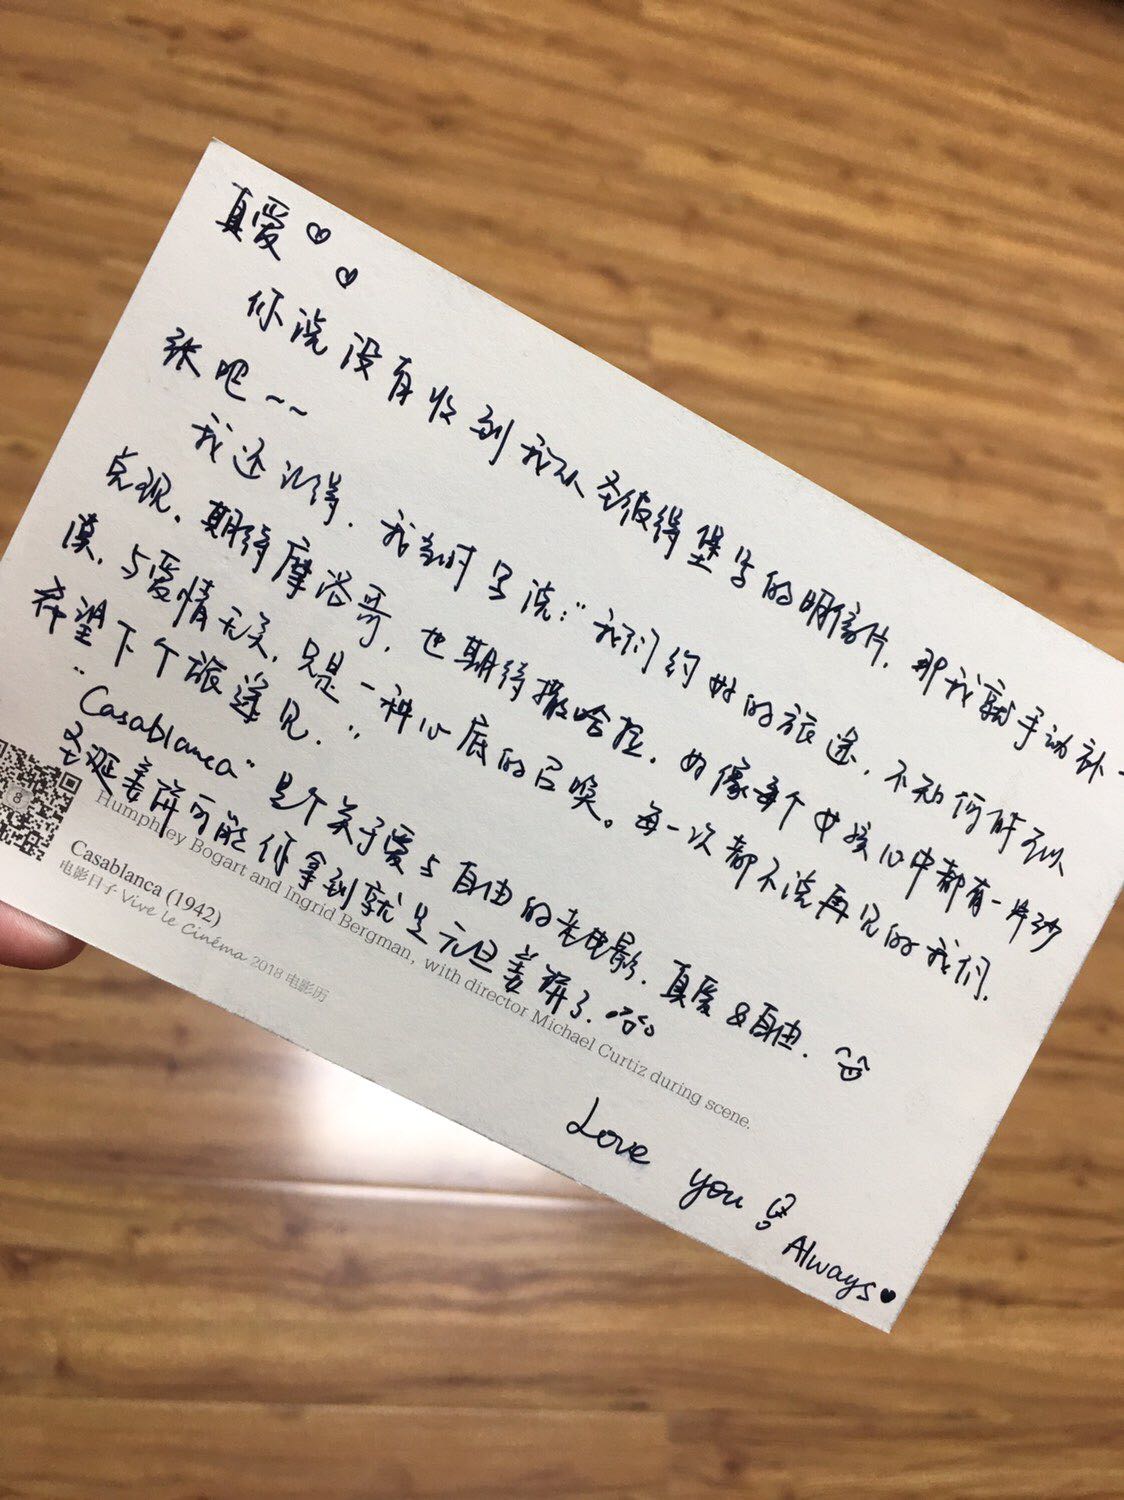 真爱♡♡
你说没有收到我从圣彼得堡写的明信片，那我就手动补一
张吧~~
我还记得，我当时写说：“我们约好的旅途，不知何时可以
兑现，期待摩洛哥，也期待撒哈拉，好像每个中
心中都有一片沙
漠，与爱情无关，只是一种心底的召唤。每一次都不说再见的我们，
希望下个旅途见.”
“Casablanca”是个关于爱与自由的老电影，真爱&自由.
圣诞姜饼可能你拿到就是元旦姜饼了.哈哈
Humphrey Bogart and Ingrid Bergman, with director Michael Curtiz during scene.
Casablanca (1942)
电影日子·Vive le Cinéma 2018 电影历
8
Love you
Always♥